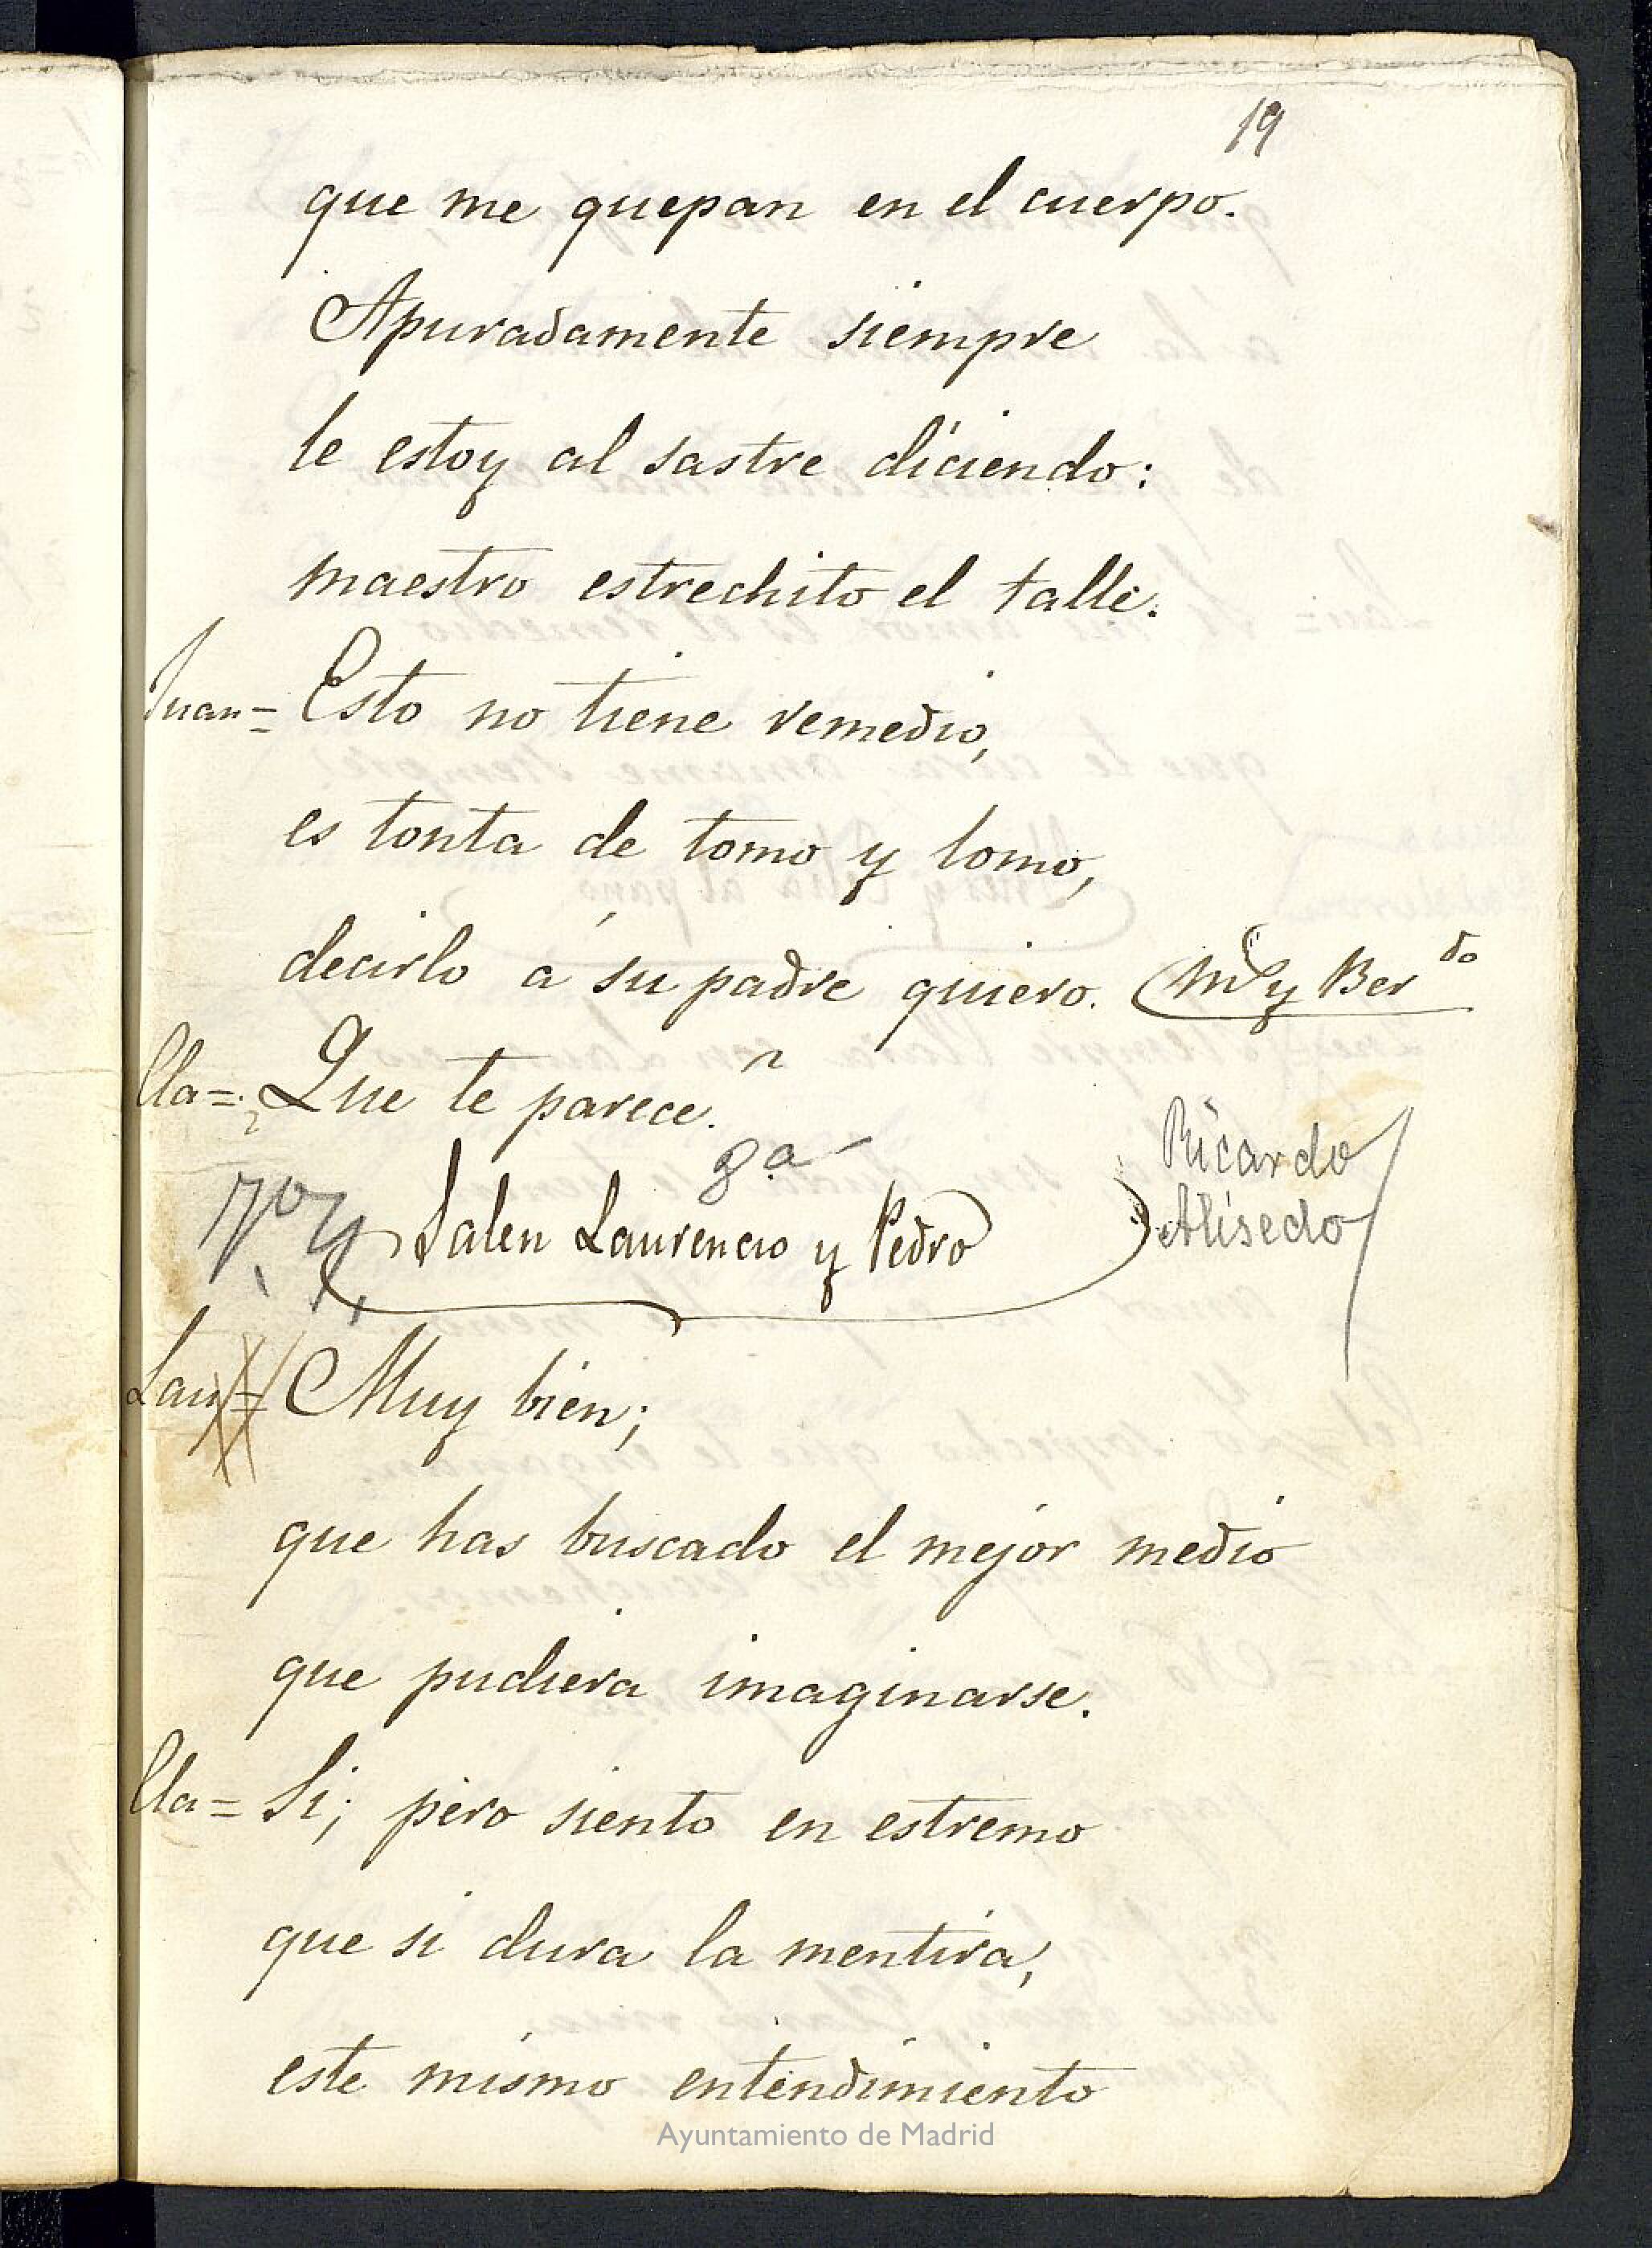 19
que me quepan en el cuerpo.
Apuradamente siempre
le estoy al sastre diciendo:
maestro estrechito el talle.
Juan= Esto no tiene remedio,
es tonta de tomo y lomo,
decirlo á su padre quiero. (y Ber.do
Cla= ¿Que te parece.
8a
Salen Laurencio y Pedro
Ricardo
Alisedo
Lau= Muy bien;
que has buscado el mejor medio
que pudiera imaginarse.
Cla= Si; pero siento en estremo
que si dura la mentira,
este mismo entendimiento
Ayuntamiento de Madrid